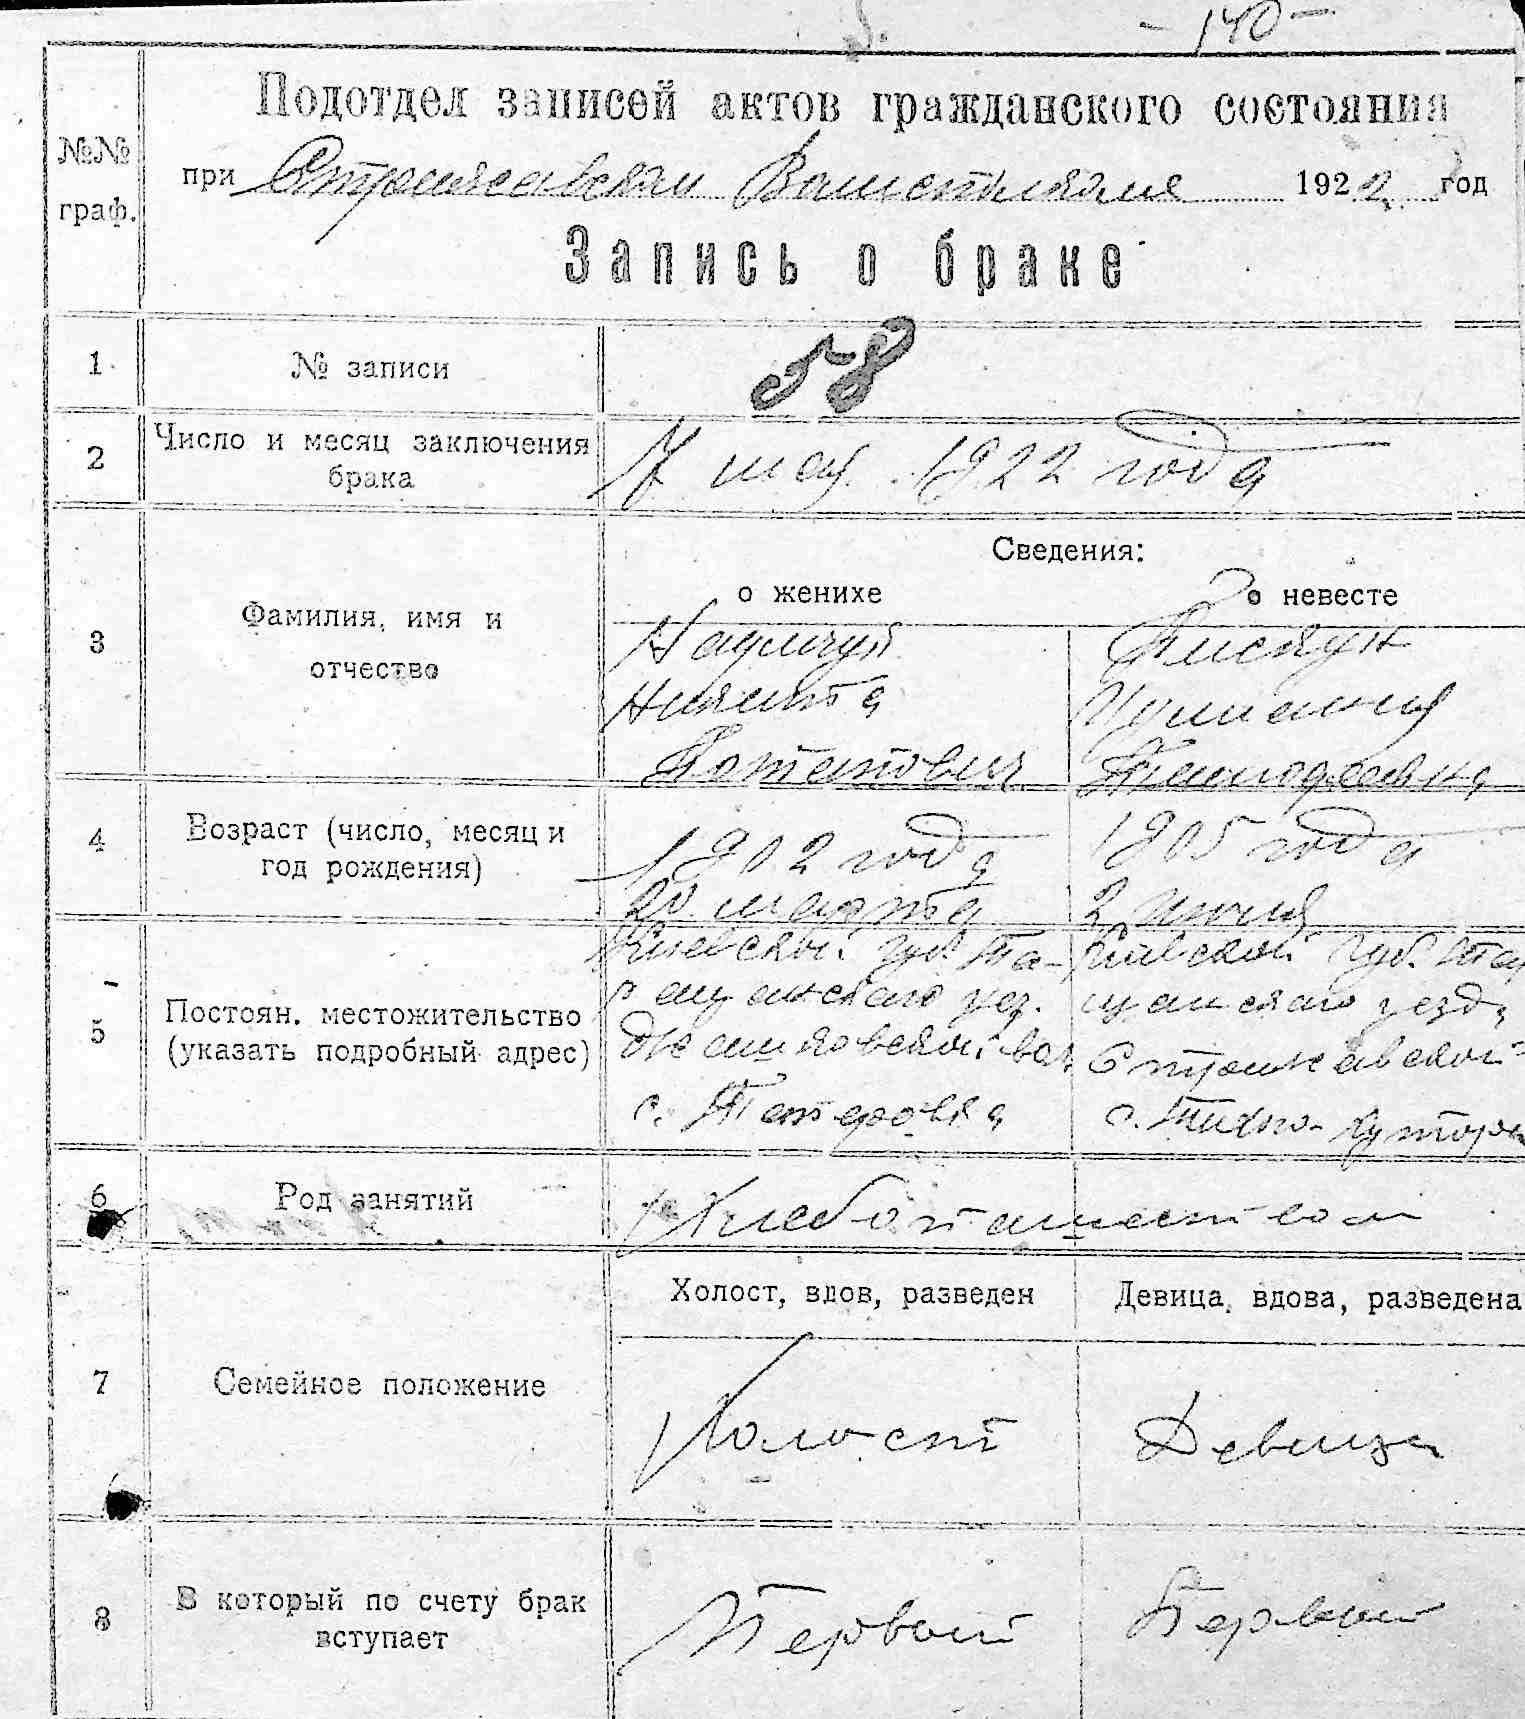 - 140 -
Подотдел записей актов гражданского состояния
№№
граф.
при Стрижавском 1922 год
Запись о браке
1 № записи 58
2 Число и месяц заключения
брака
7 мая 1922 года
Сведения:
о женихе о невесте
3 Фамилия, имя и
отчество
Никита
Потапович
Пискун
Тимофеевна
4 Возраст (число, месяц и
год рождения)
1902 года
20 марта
1905 года
2 июня
5 Постоян. местожительство
(указать подробный адрес)
Киевской губ. Та-
ращанского уез.
вол.
с. Петровка
Киевской губ. Тара
щанского уезда
с. Тихо-хутора
6 Род занятий Хлебопашеством
Холост, вдов, разведен Девица, вдова, разведена
7 Семейное положение Холост Девица
8 В который по счету брак
вступает
Первый Первый